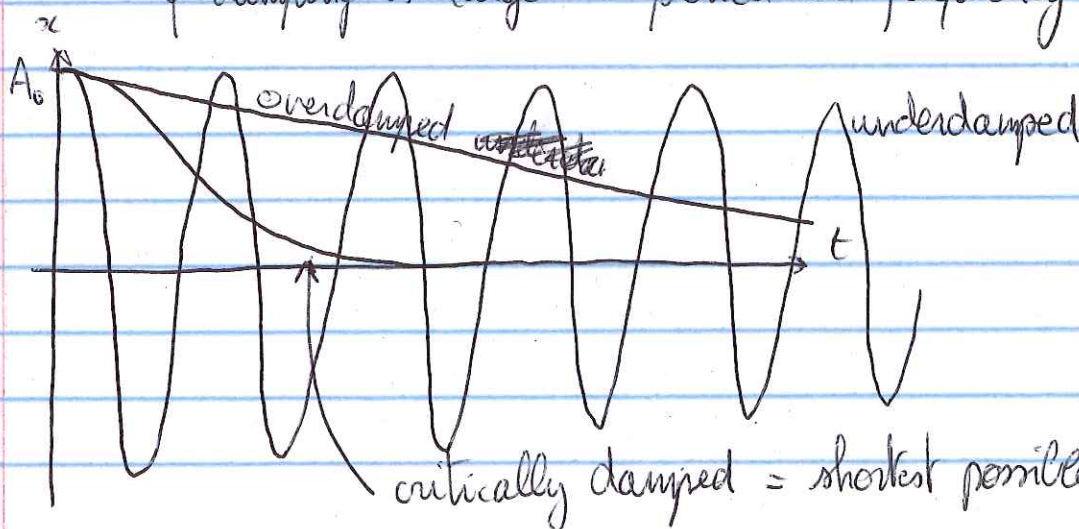 damping is large
x
A₀
overdamped
underdamped
t
critically damped = shortest possible